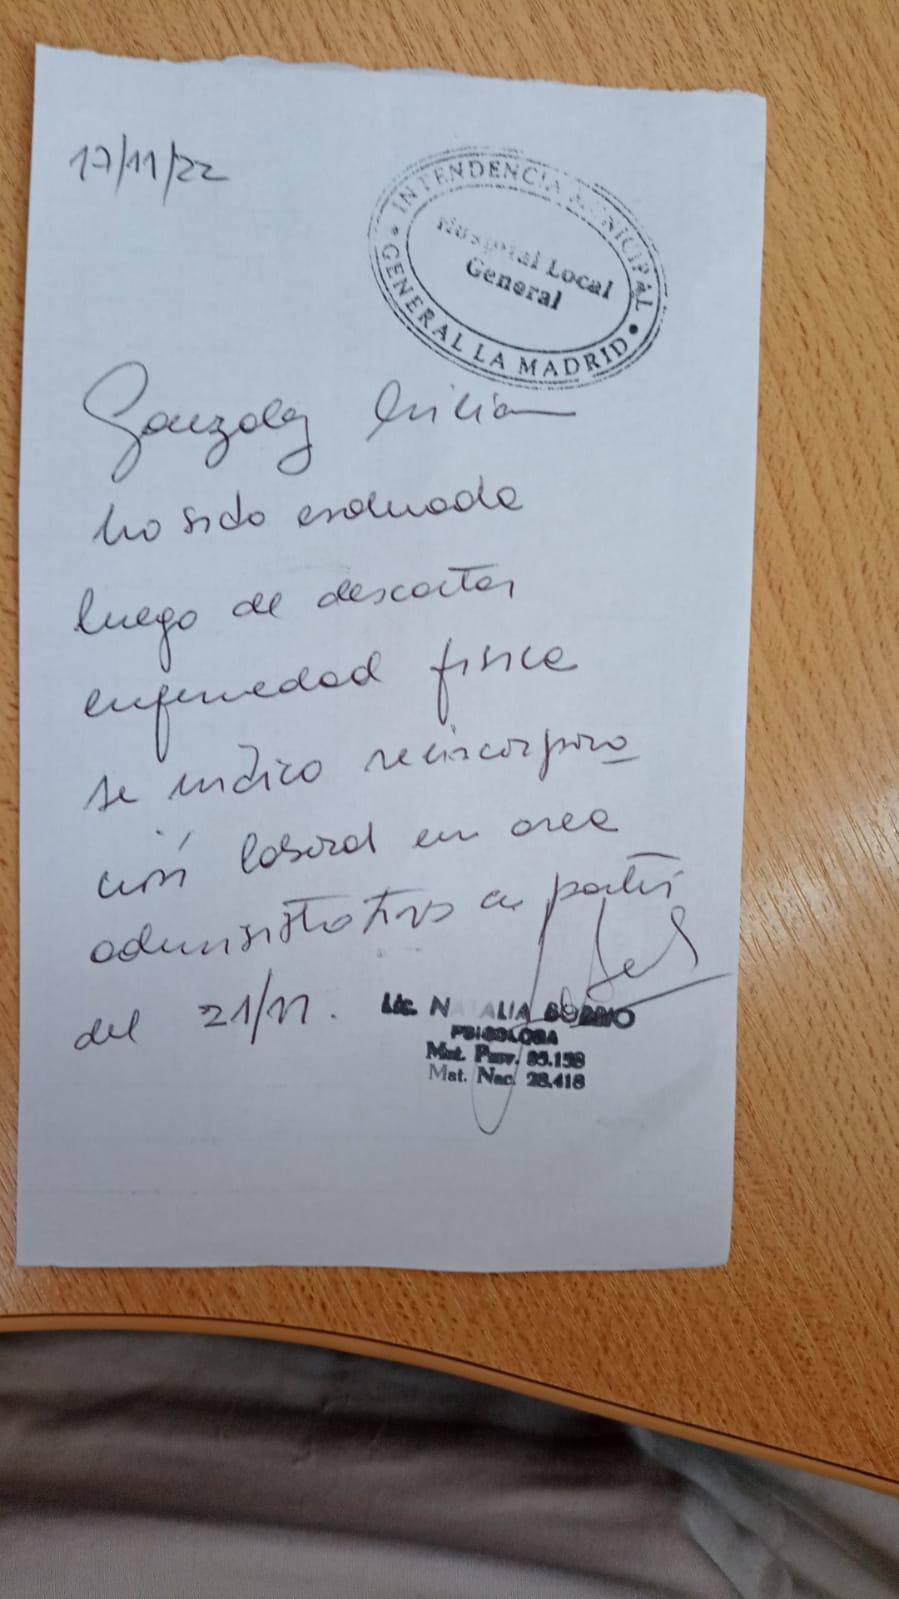 17/11/22
INTENDENCIA MUNICIPAL
Hospital Local
General
GENERAL LA MADRID
Gonzalez
ha sido evaluada
luego de descartar
enfermedad fisica
se indica reincorpora
ción laboral en area
administrativa a partir
del 21/11.
Lic. NATALIA
PSICOLOGA
Mat. Prov. 85.138
Mat. Nac. 28.418